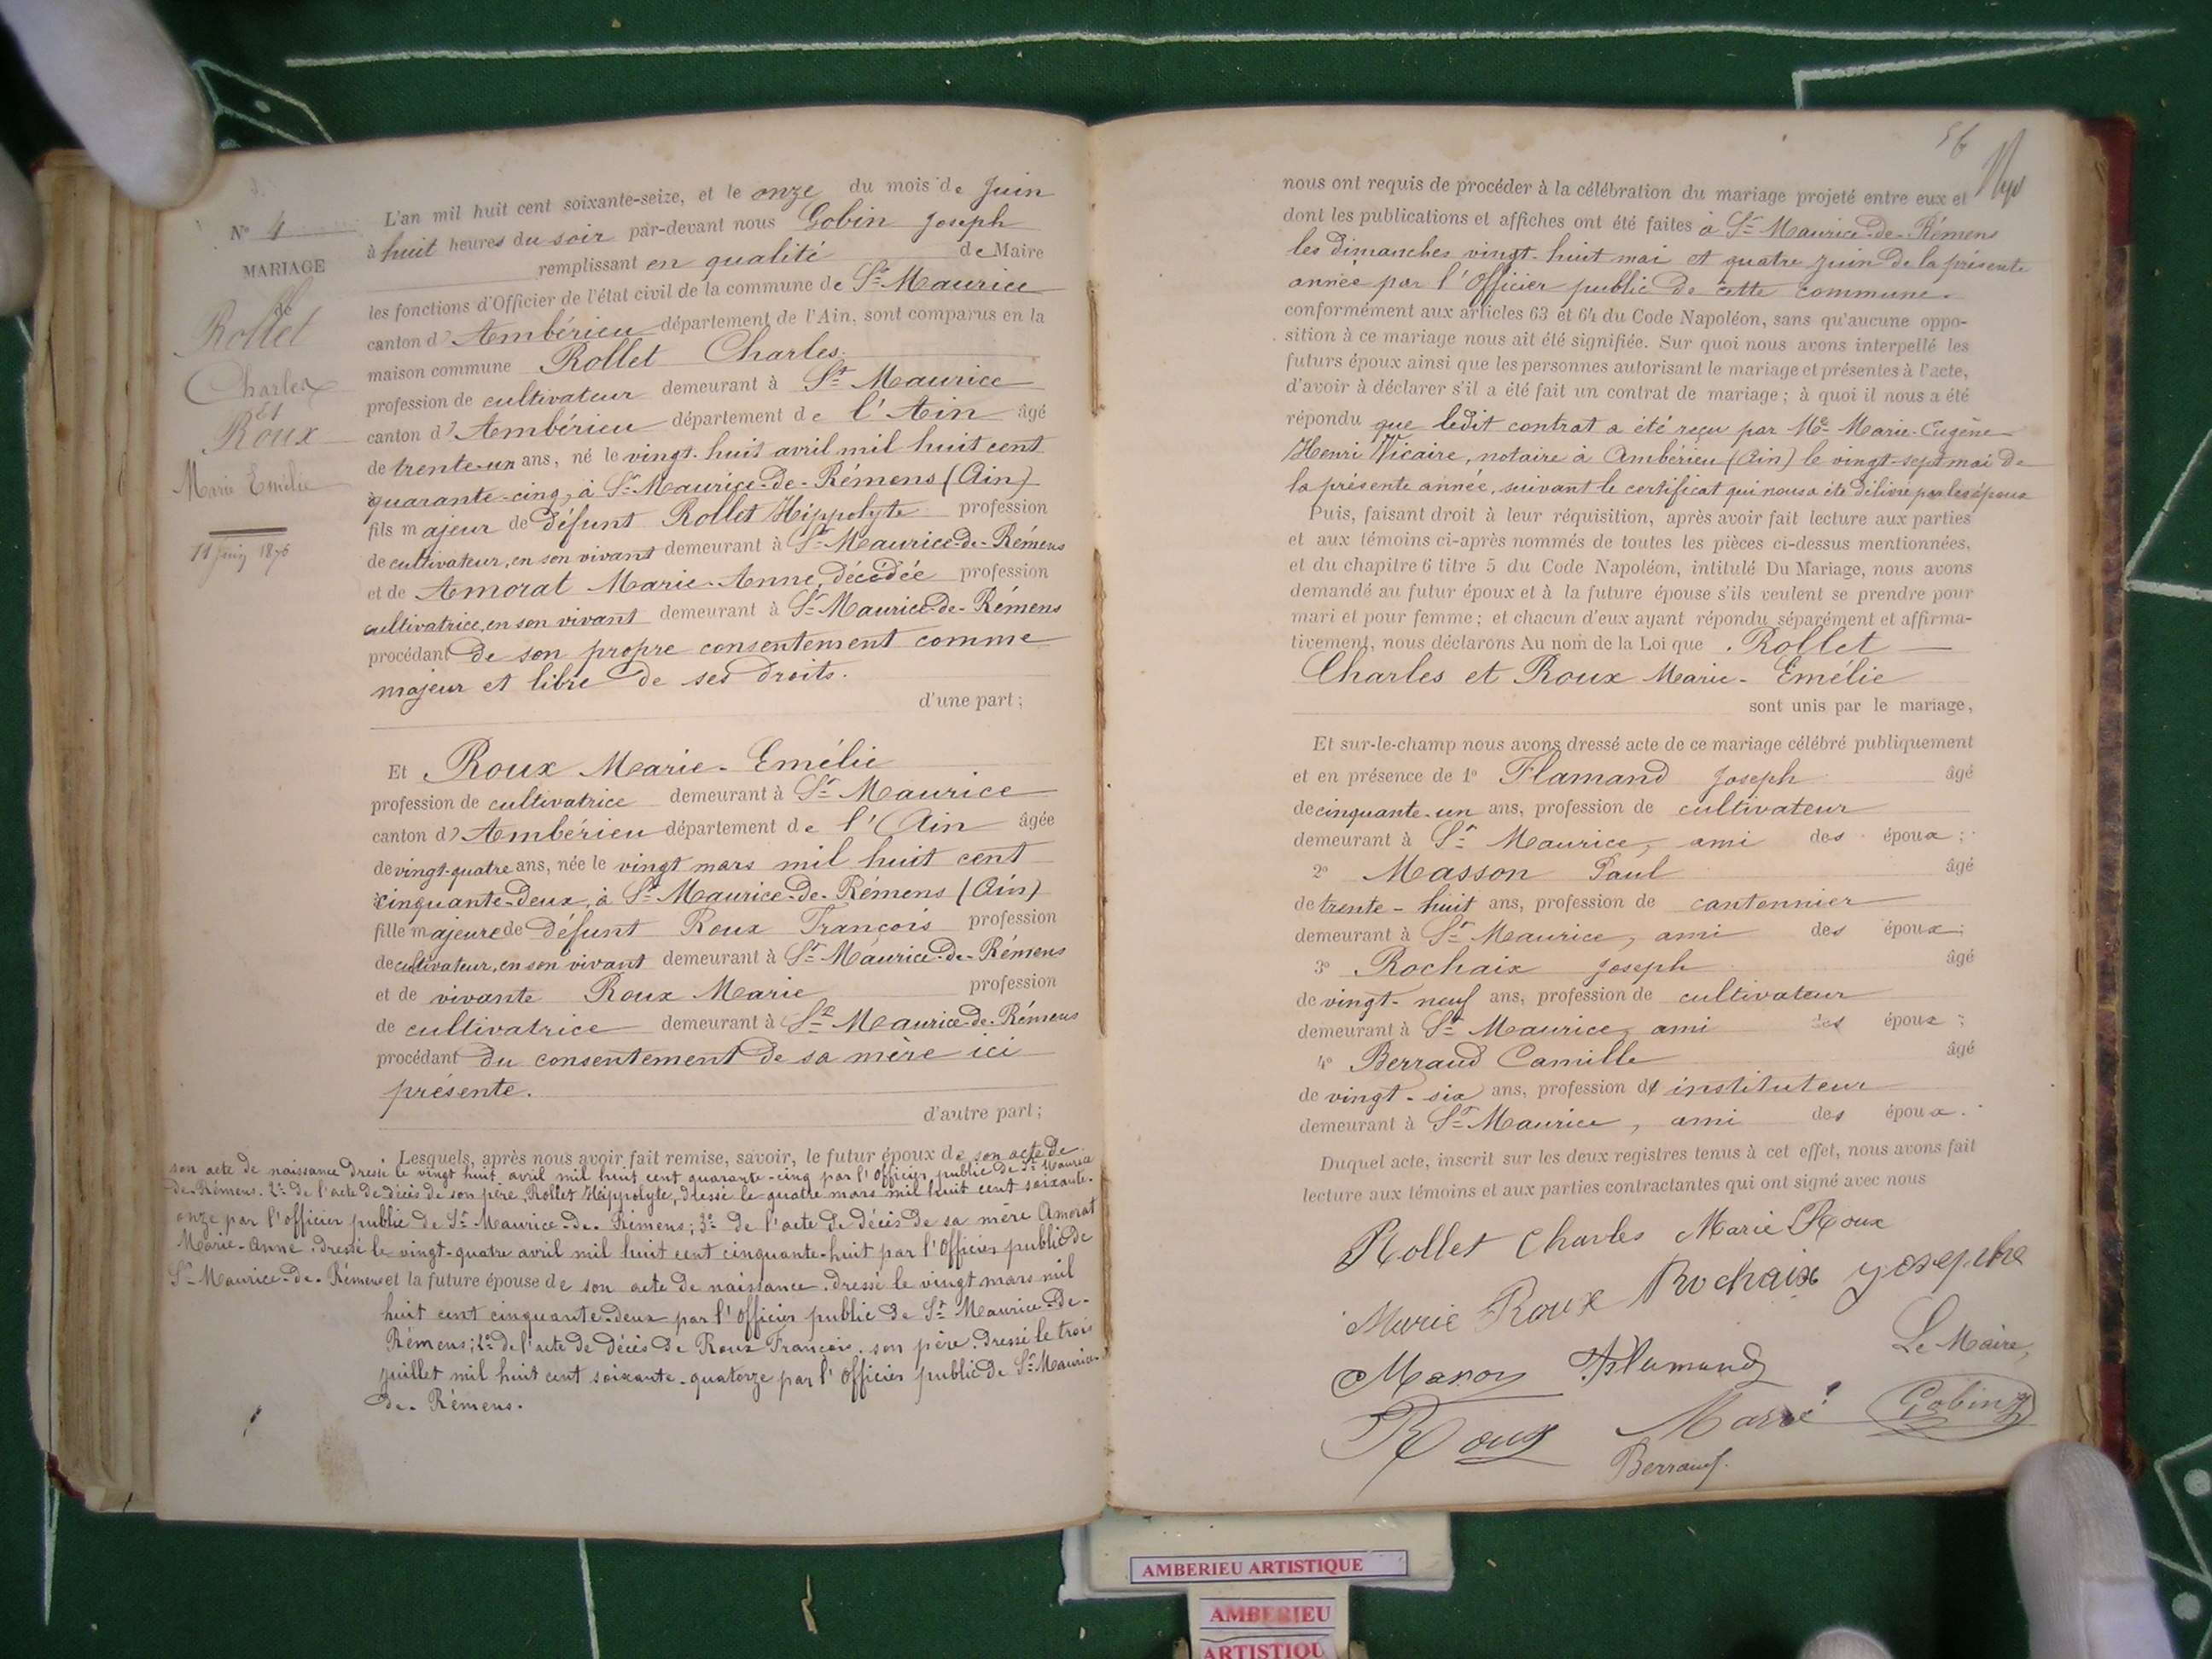 Nº 4
MARIAGE
de
Rollet
Charles
et
Roux
Marie Emélie
11 Juin 1876
L'an mil huit cent soixante-seize, et le onze du mois de Juin
à huit heures du soir par-devant nous Gobin Joseph
remplissant en qualité de Maire
les fonctions d'Officier de l'état civil de la commune de St Maurice
canton d' Ambérieu département de l'Ain, sont comparus en la
maison commune Rollet Charles.
profession de cultivateur demeurant à St Maurice
canton d' Ambérieu département de l'Ain âgé
de trente-un ans, né le vingt-huit avril mil huit cent
quarante-cinq, à St Maurice-de-Rémens (Ain)
fils majeur de défunt Rollet Hippolyte profession
de cultivateur, en son vivant demeurant à St Maurice-de-Rémens
et de Amorat Marie-Anne, décédée profession
cultivatrice, en son vivant demeurant à St Maurice-de-Rémens
procédant de son propre consentement comme
majeur et libre de ses droits.
d'une part;
Et Roux Marie-Emélie
profession de cultivatrice demeurant à St Maurice
canton d' Ambérieu département de l'Ain âgée
de vingt-quatre ans, née le vingt mars mil huit cent
cinquante-deux, à St Maurice-de-Rémens (Ain)
fille majeure de défunt Roux François profession
de cultivateur, en son vivant demeurant à St Maurice-de-Rémens
et de vivante Roux Marie profession
de cultivatrice demeurant à St Maurice-de-Rémens
procédant du consentement de sa mère ici
présente.
d'autre part;
Lesquels, après nous avoir fait remise, savoir, le futur époux de son acte de
son acte de naissance dressé le vingt huit avril mil huit cent quarante-cinq par l'Officier public de St Maurice
de-Rémens. 2º de l'acte de décès de son père, Rollet Hippolyte, dressé le quatre mars mil huit cent soixante-
onze par l'officier public de St Maurice-de-Rémens; 3º de l'acte de décès de sa mère Amorat
Marie-Anne, dressé le vingt-quatre avril mil huit cent cinquante-huit par l'Officier public de
St Maurice-de-Rémens et la future épouse de son acte de naissance dressé le vingt mars mil
huit cent cinquante-deux par l'Officier public de St Maurice-de-
Rémens; 2º de l'acte de décès de Roux François, son père, dressé le trois
juillet mil huit cent soixante-quatorze par l'Officier public de St Maurice-
de-Rémens.
56
nous ont requis de procéder à la célébration du mariage projeté entre eux et
dont les publications et affiches ont été faites à St Maurice-de-Rémens
les dimanches vingt-huit mai et quatre juin de la présente
année par l'Officier public de cette commune.
conformément aux articles 63 et 64 du Code Napoléon, sans qu'aucune oppo-
sition à ce mariage nous ait été signifiée. Sur quoi nous avons interpellé les
futurs époux ainsi que les personnes autorisant le mariage et présentes à l'acte,
d'avoir à déclarer s'il a été fait un contrat de mariage; à quoi il nous a été
répondu que ledit contrat a été reçu par Me Marie-Eugène-
Henri Vicaire, notaire à Ambérieu (Ain) le vingt-sept mai de
la présente année, suivant le certificat qui nous a été délivré par les époux
Puis, faisant droit à leur réquisition, après avoir fait lecture aux parties
et aux témoins ci-après nommés de toutes les pièces ci-dessus mentionnées,
et du chapitre 6 titre 5 du Code Napoléon, intitulé Du Mariage, nous avons
demandé au futur époux et à la future épouse s'ils veulent se prendre pour
mari et pour femme; et chacun d'eux ayant répondu séparément et affirma-
tivement, nous déclarons Au nom de la Loi que Rollet
Charles et Roux Marie-Emélie
sont unis par le mariage,
Et sur-le-champ nous avons dressé acte de ce mariage célébré publiquement
et en présence de 1º Flamand Joseph âgé
de cinquante-un ans, profession de cultivateur
demeurant à St Maurice, ami des époux;
2º Masson Paul âgé
de trente-huit ans, profession de cantonnier
demeurant à St Maurice, ami des époux;
3º Rochaix Joseph âgé
de vingt-neuf ans, profession de cultivateur
demeurant à St Maurice, ami des époux;
4º Berraud Camille âgé
de vingt-six ans, profession d' instituteur
demeurant à St Maurice, ami des époux.
Duquel acte, inscrit sur les deux registres tenus à cet effet, nous avons fait
lecture aux témoins et aux parties contractantes qui ont signé avec nous
Rollet Charles Marie Roux
Marie Roux Rochaix Josephe
Flamand Le Maire,
Roux Marie Gobin
Berraud
AMBERIEU ARTISTIQUE
AMBERIEU
ARTISTIQU